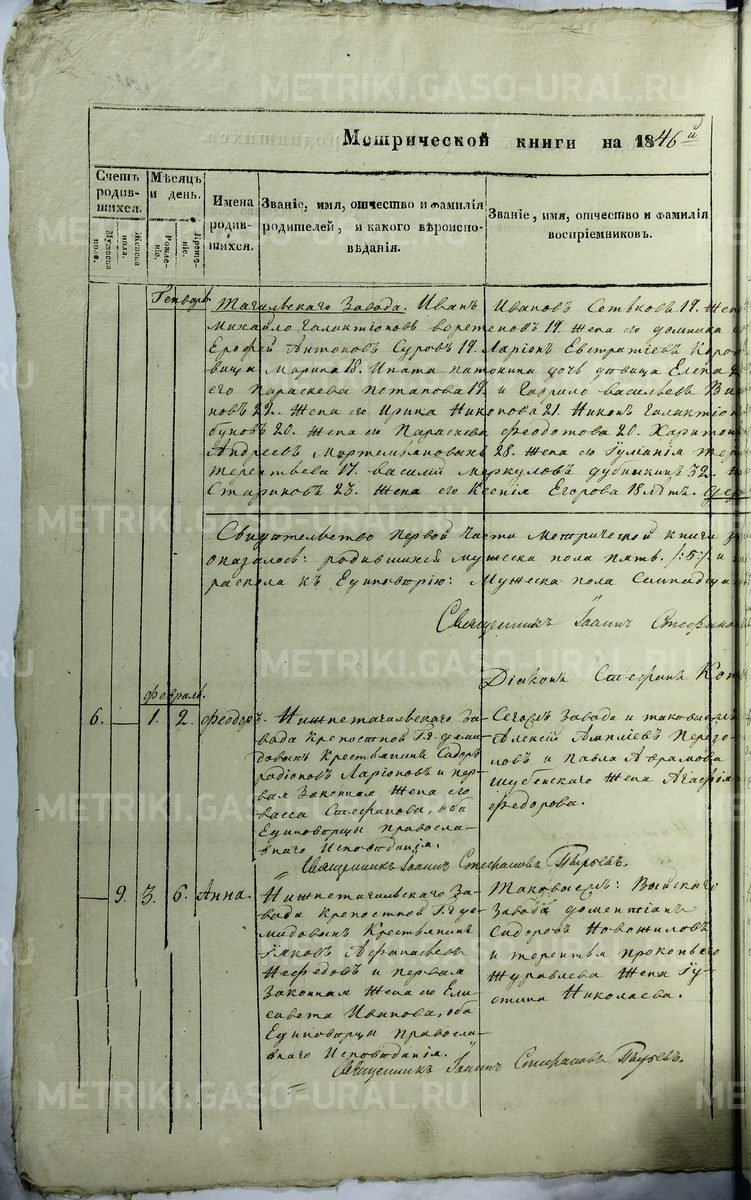 Метрической книги на 1846й
Счетъ родив-шихся.
Мужеска пола.
Женска пола.
Мѣсяцъ и день.
Рожде-нiе.
Креще-нiе.
Имена родив-шихся.
Званiе, имя, отчество и фамилiя родителей, и какого вѣроиспо-вѣданiя.
Званiе, имя, отчество и фамилiя воспрiемниковъ.
Генварь
Тагильскаго Завода. Иванъ Ивановъ Сотьковъ 19. Жена
Михайло Галактiоновъ Веретеновъ 19. Жена его Домника
Ерофей Антоновъ Суровъ 19. Ларiонъ Евстратiевъ
вица Марина 18. Ипата дочь девица Елена
его Параскева Потапова 19. и Гаврило Васильевъ
новъ 22. Жена его Ирина Никонова 21. Никонъ Галактiо
буновъ 20. Жена его Параскева Феодотова 20. Харитонъ
Андреевъ Мартемьяновыхъ 28. Жена его Iулианiя
Терентьева 17. Василiй Меркуловъ Дубинкинъ 32.
Стариковъ 23. Жена его Ксенiя Егорова 18 лѣтъ.
Свидѣтельство первой части метрической книги
оказалось: родившихся мужеска пола пять /:5:/ и
раскола къ Единовѣрiю: мужеска пола
Священникъ Iоаннъ Стефано
Дiаконъ Стефанъ
Февраль.
6. — 1. 2. Феодоръ.
Нижнетагильскаго За-
вода крепостной Г.г. Деми-
довыхъ крестьянинъ Сидоръ
Родiоновъ Ларiоновъ и пер-
вая законная жена его
васса Стефанова, оба
Единоверцы Правосла-
внаго Исповѣданiя.
Сегожъ Завода и таковыежъ
Алексiй Амплiевъ
ловъ и Павла Аврамова
Шубенскаго жена Агафiя
Федорова.
Священникъ Iоаннъ Стефановъ Пырьевъ.
— 9. 3. 6. Анна.
Нижнетагильскаго За-
вода крепостной Г.г. Де-
мидовыхъ крестьянинъ
Iаковъ Афанасьевъ
Нефедовъ и первая
законная жена его Ели-
савета Иванова, оба
Единоверцы Правосла-
внаго Исповѣданiя.
Таковыежъ: Выйскаго
Завода Доментiанъ
Сидоровъ Новожиловъ
и Терентья Прокопьева
Журавлева жена Iу-
стина Николаева.
Священникъ Iоаннъ Стефановъ Пырьевъ.
METRIKI.GASO-URAL.RU